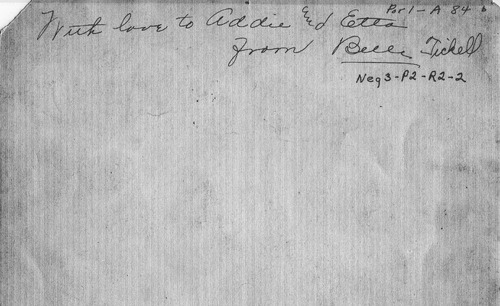 With love to Addie and Etta
Por1-A 84 b
from Belle Tickell
Neg3-P2-R2-2